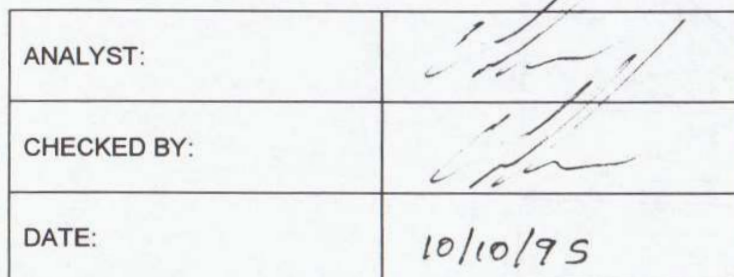 ANALYST:
CHECKED BY:
DATE: 10/10/95